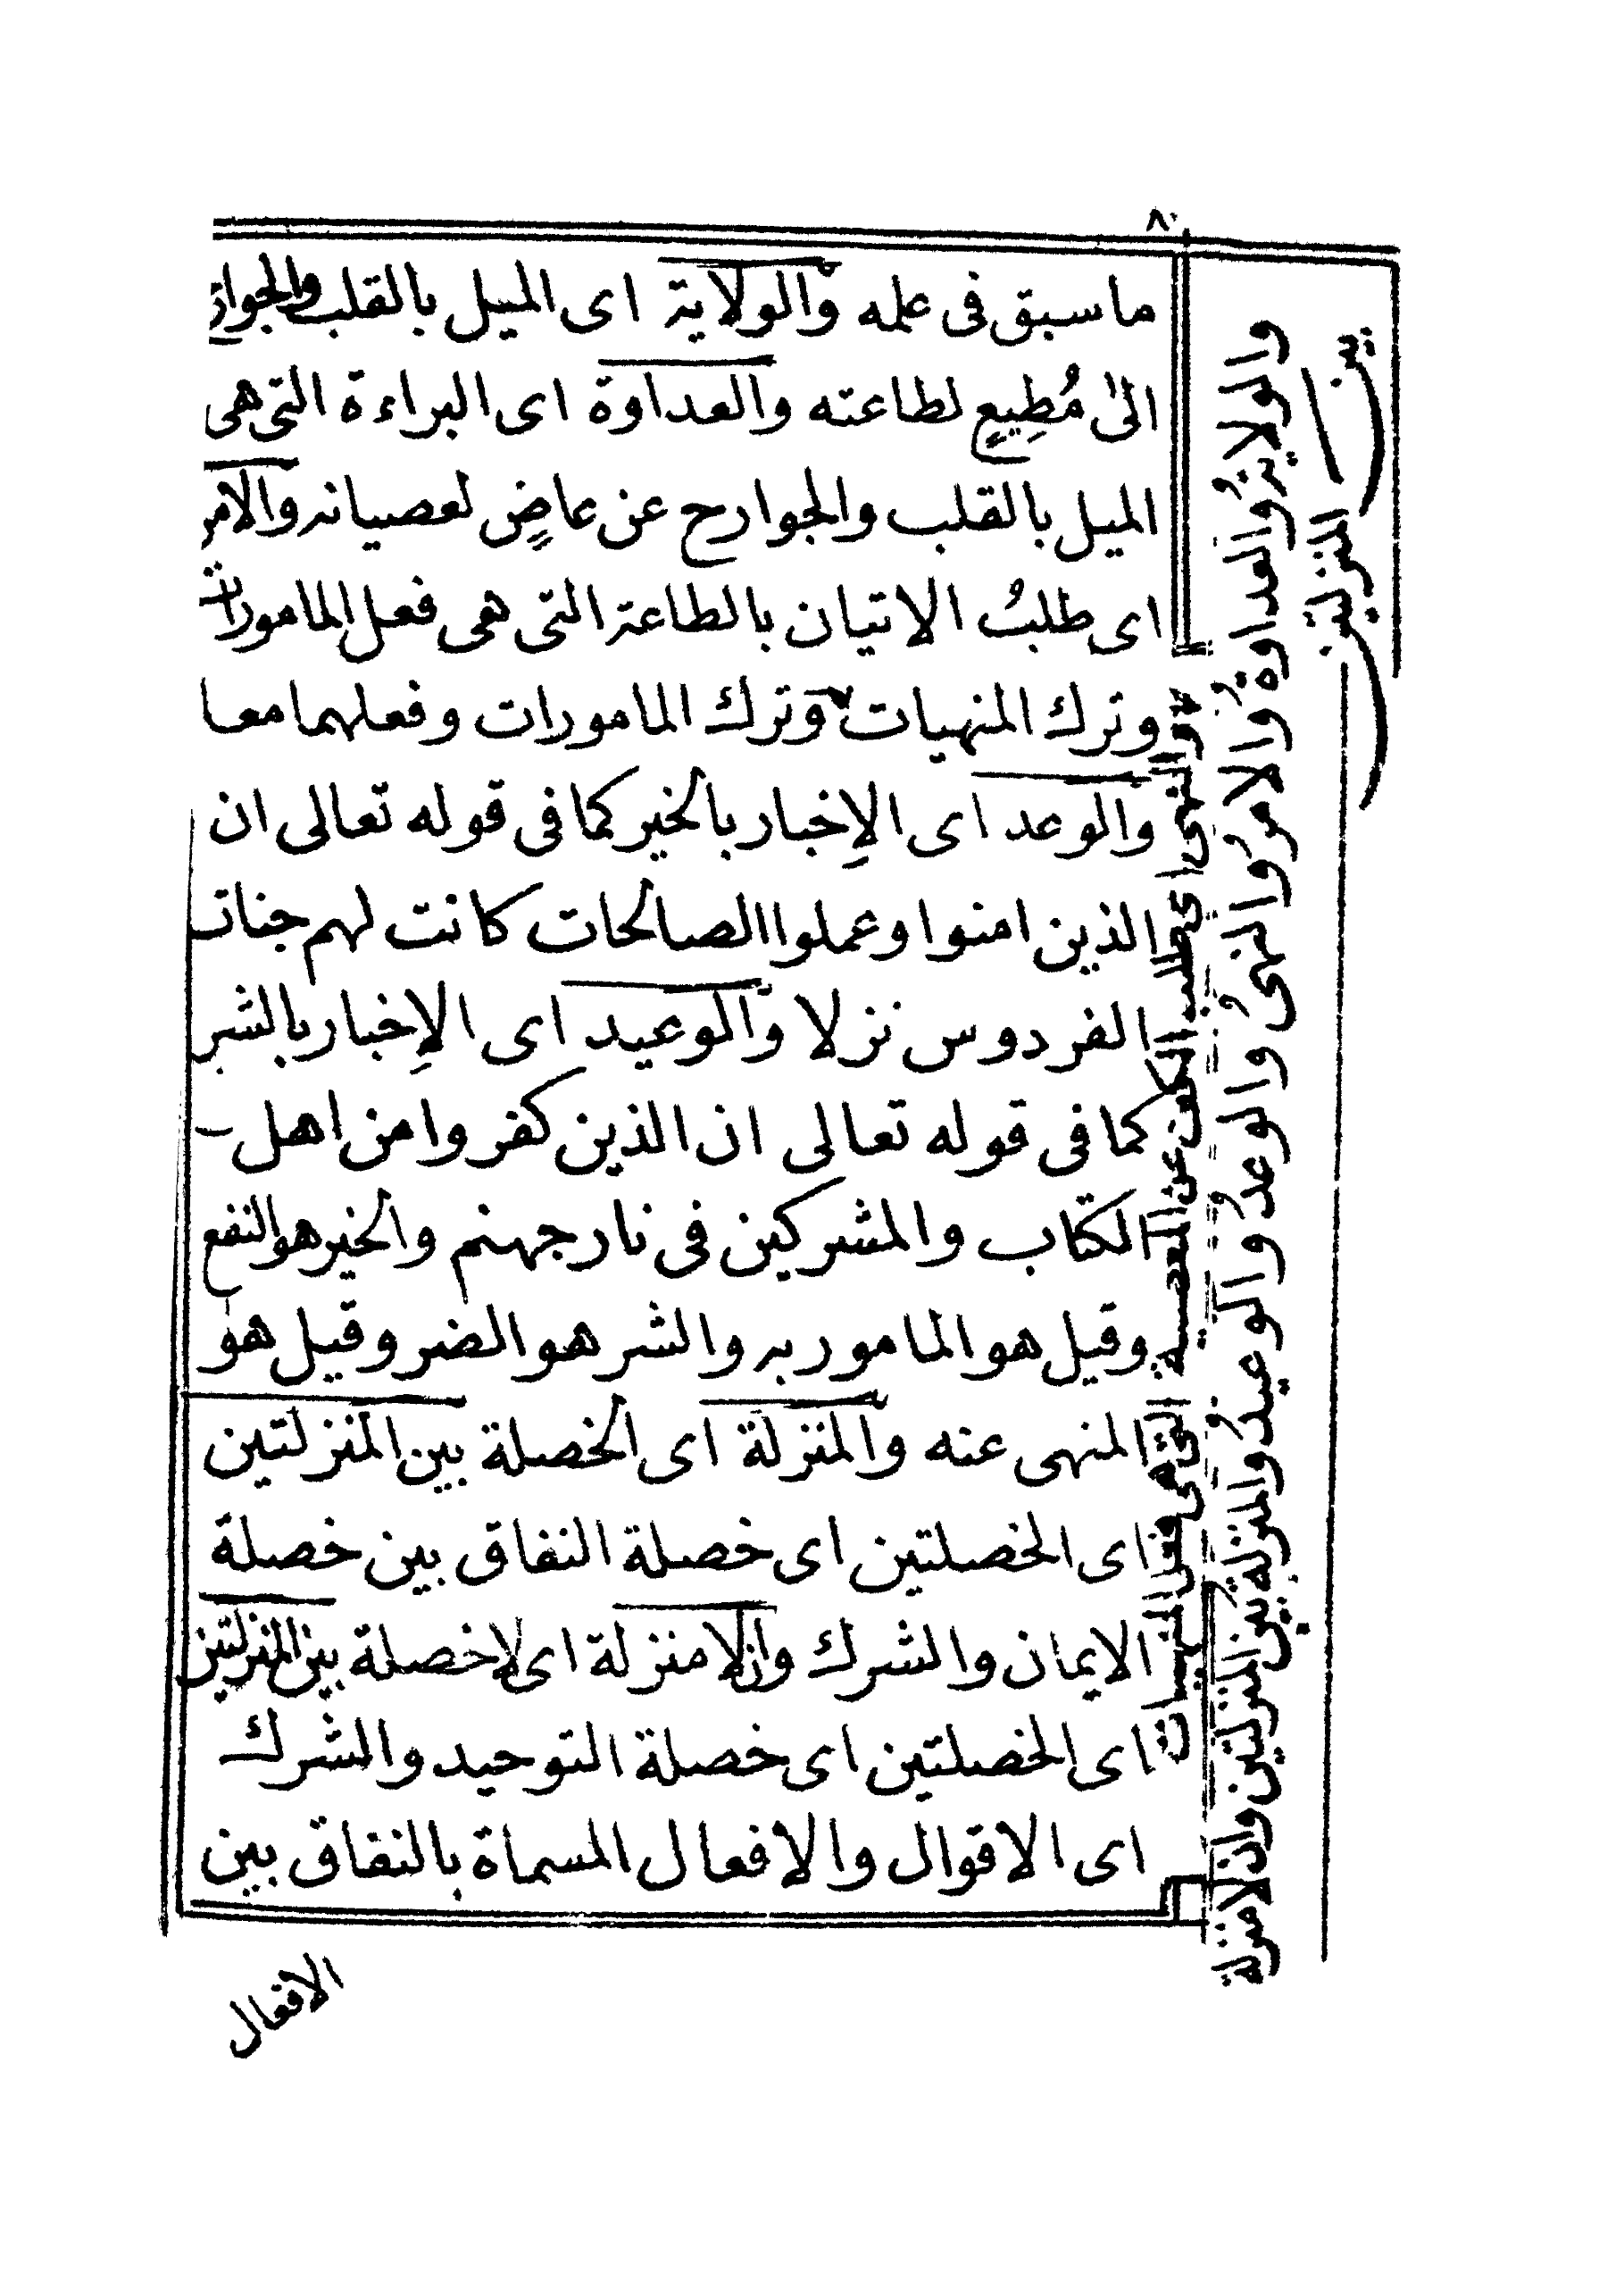 ٨
ما سبق فى علمه والولاية اى الميل بالقلب والجوارح
الى مُطِيعٍ لطاعته والعداوة اى البراءة التى هى
الميل بالقلب والجوارح عن عاصٍ لعصيانه والامر
اى طلبُ الاتيان بالطاعة التى هى فعل المامورات
وترك المنهيات وترك المامورات وفعلهما معا
والوعد اى الإخبار بالخير كما فى قوله تعالى ان
الذين امنوا وعملوا الصالحات كانت لهم جنات
الفردوس نزلا والوعيد اى الإخبار بالشر
كما فى قوله تعالى ان الذين كفروا من اهل
الكتاب والمشركين فى نار جهنم والخير هو النفع
وقيل هو المامور به والشر هو الضر وقيل هو
المنهى عنه والمنزلة اى الخصلة بين المنزلتين
اى الخصلتين اى خصلة النفاق بين خصلة
الايمان والشرك وان لا منزلة اى لا خصلة بين المنزلتين
اى الخصلتين اى خصلة التوحيد والشرك
اى الاقوال والافعال المسماة بالنفاق بين
الافعال
والنهى اى طلب الكف عن المعصية التى هى فعل المنهيات
والولايةُ والعداوةُ والامرُ والنهىُ والوعدُ والوعيدُ والمنزلةُ بين المنزلتين وان لا منزلة
بين المنزلتين